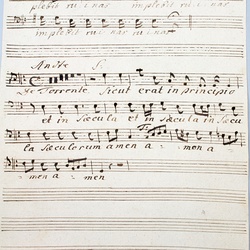 plebit ruinas implebit rui
implebit ruinas
And:te
De Torrente Sicut erat in principio
et in sæcula et in sæcula in sæcu
la sæculorum amen a men a
men a men